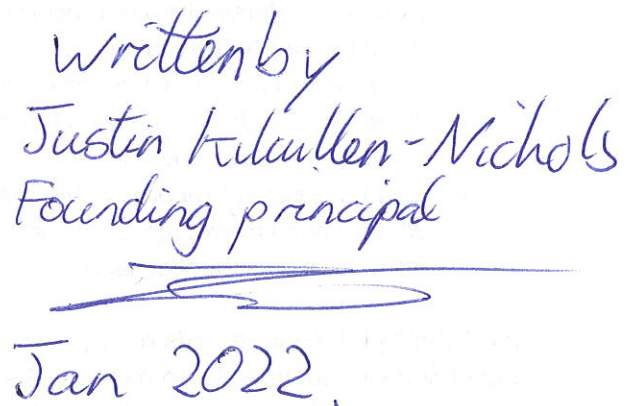 Written by
Justin Kilcullen-Nichols
Founding principal
Jan 2022.